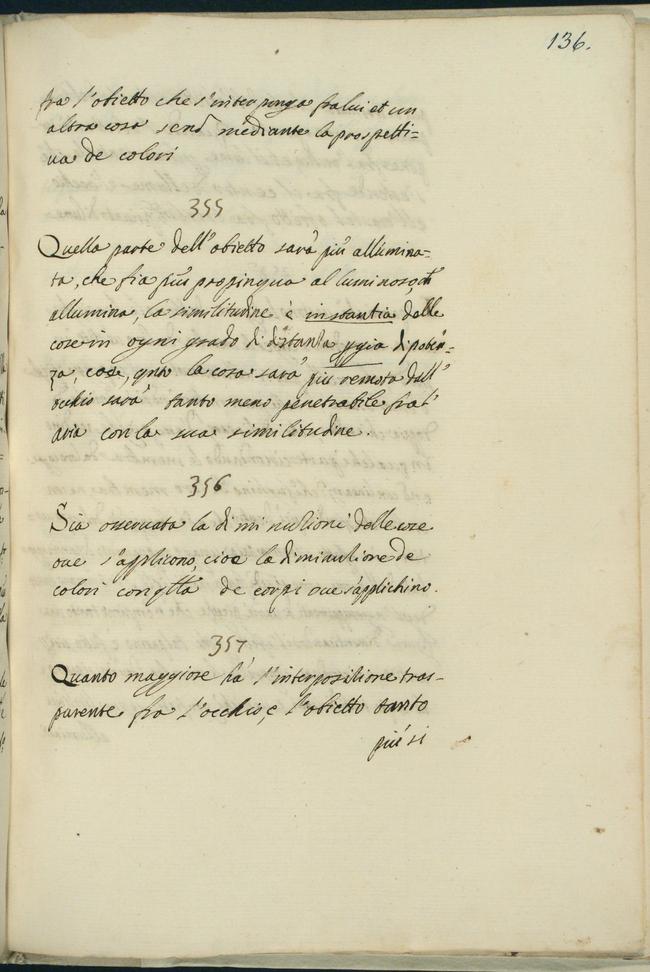 136.
fra l'obietto che s'interponga fra lui et un
altra cosa send mediante la prospetti=
ua de colori
355
Quella parte dell'obietto sarà più allumina-
ta, che fia più propinqua al luminoso, ch
allumina, la similitudine è instantia delle
cose in ogni grado di distantia di poten=
za, cose, qnto la cosa sarà più remota dall'
occhio sarà tanto meno penetrabile fral'
aria con la sua similitudine.
356
Sia osseruata la diminutioni delle cose
oue s'applicono, cioe la diminutione de
colori de corpi oue s'applichino.
357
Quanto maggiore fia l'interpositione tras-
parente fra l'occhio, e l'obietto tanto
più si